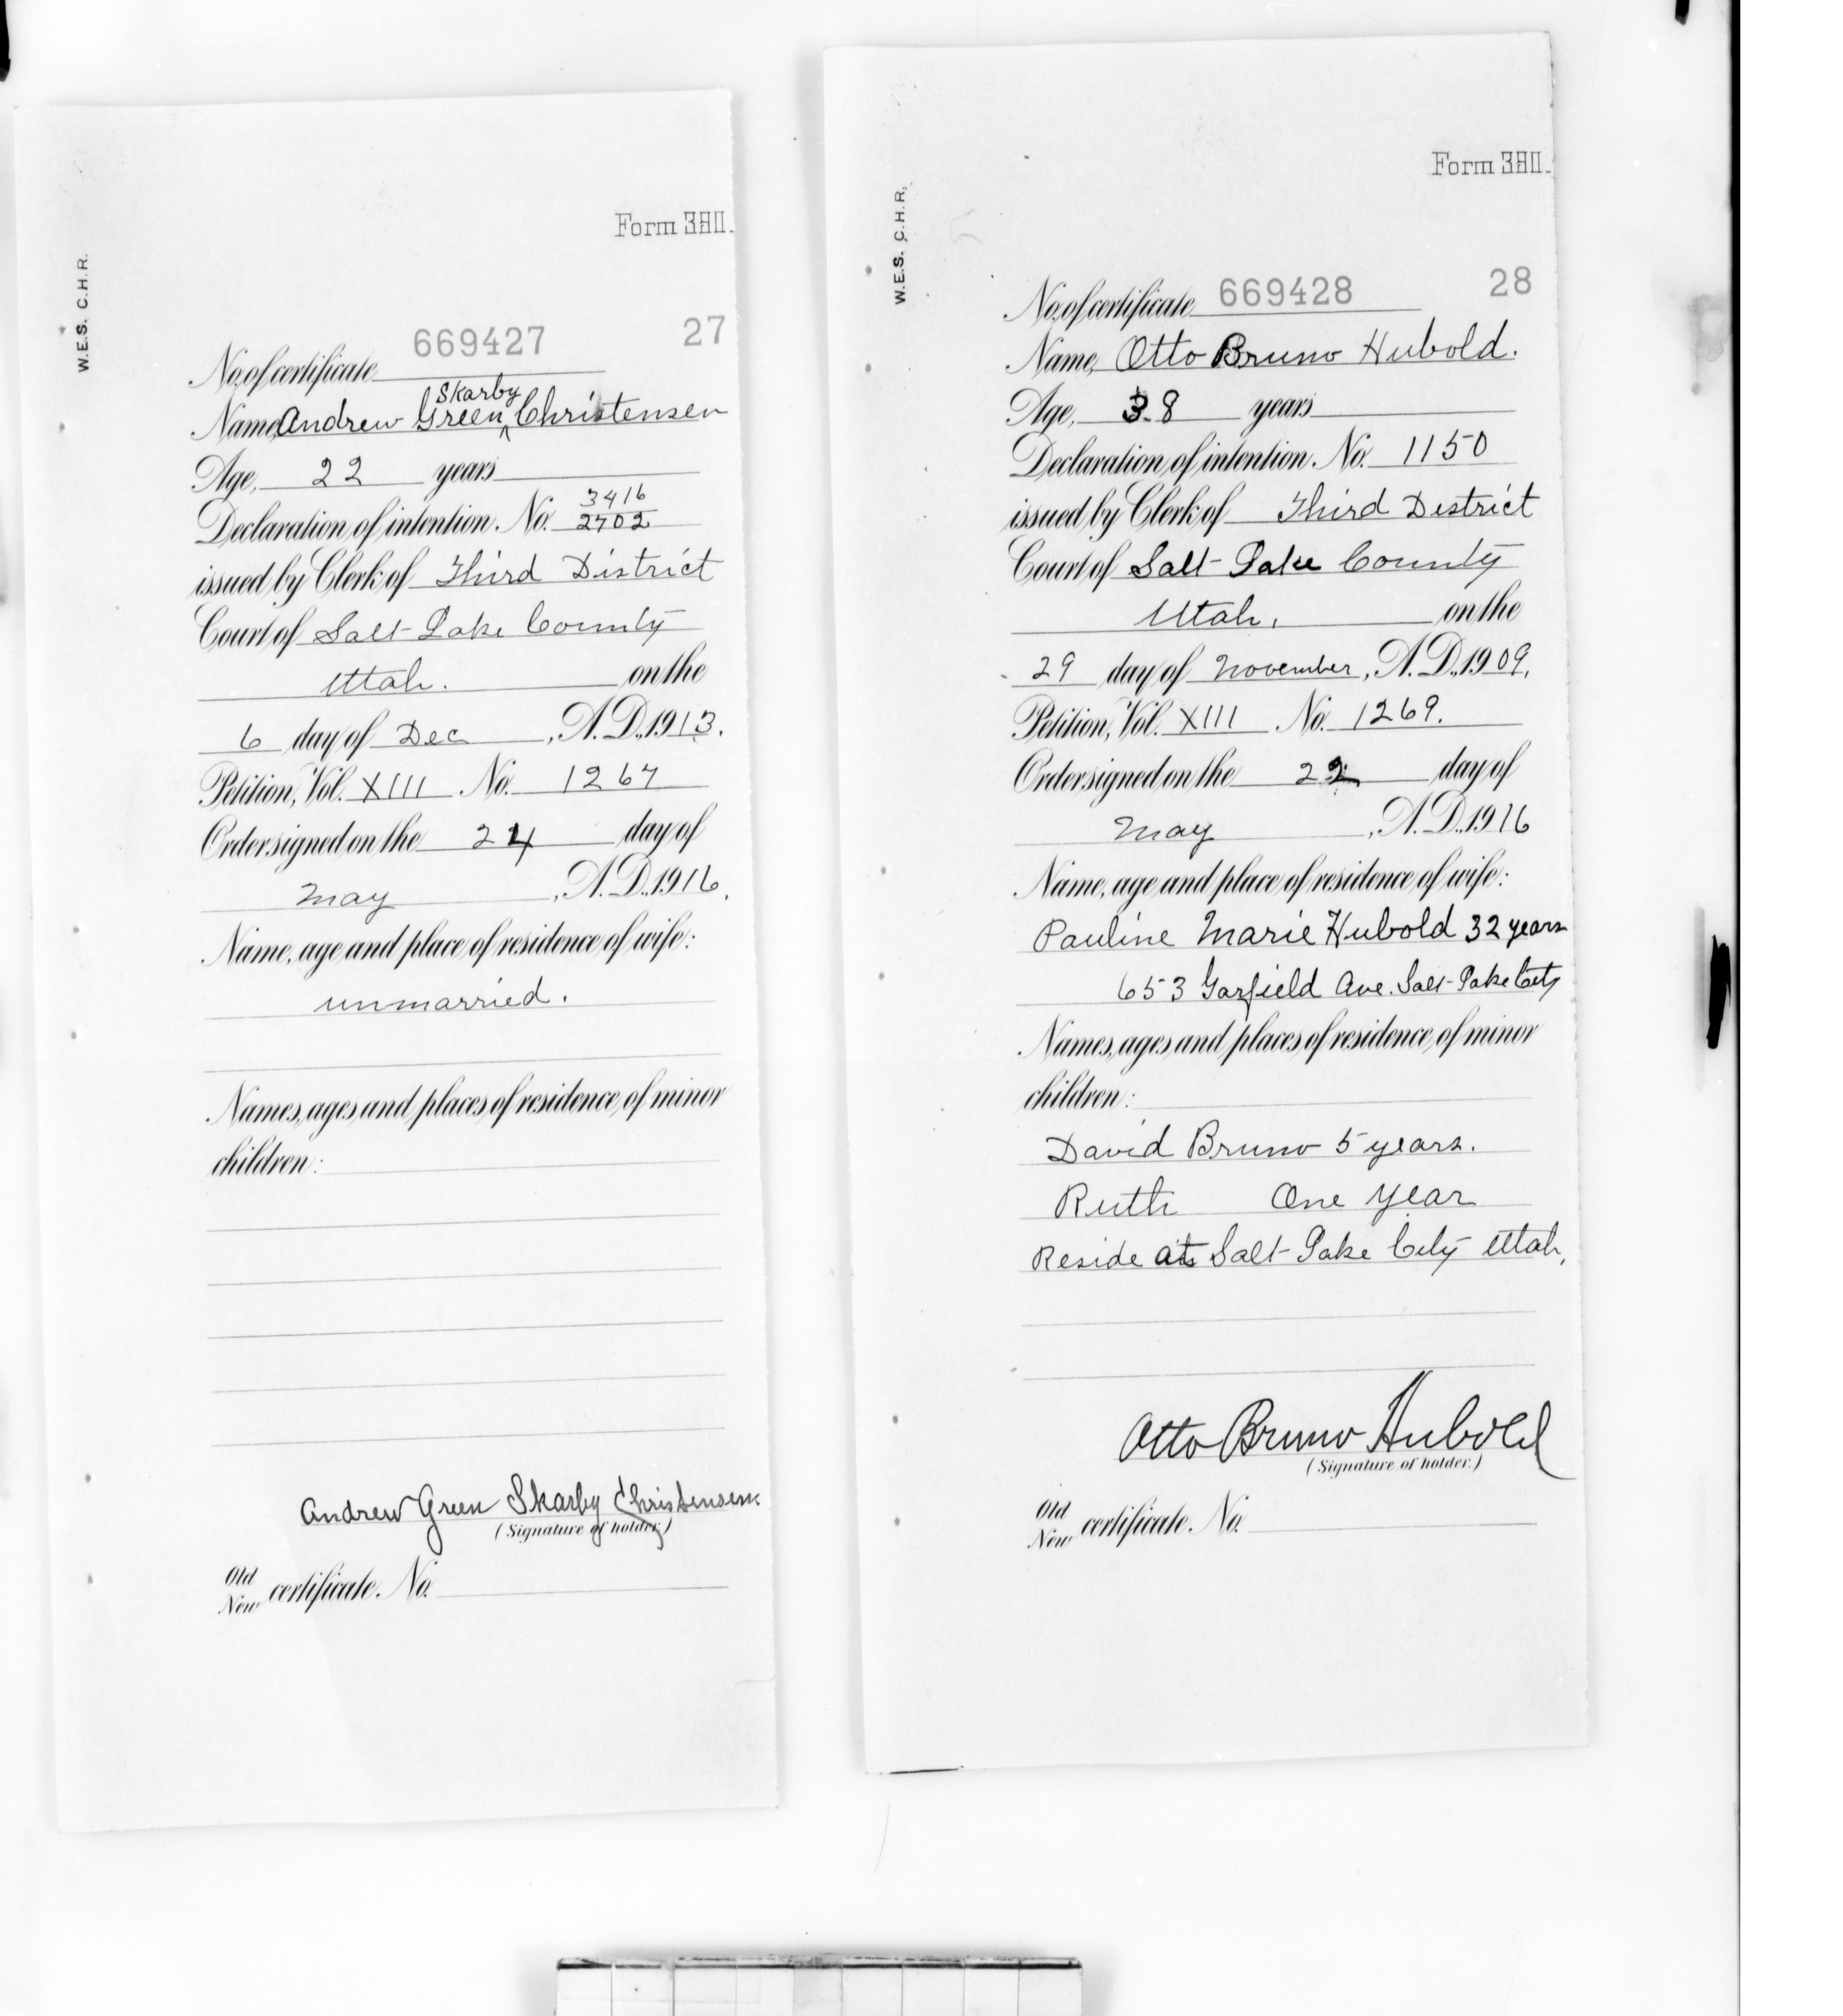 Form 380.
W.E.S. C.H.R.
27
No. of certificate 669427
Skarby
Name, Andrew Green ^ Christensen
Age, 22 years
3416
Declaration of intention. No. 2702
issued by Clerk of Third District
Court of Salt Lake County
Utah. on the
6 day of Dec , A.D. 1913.
Petition, Vol. XIII No. 1267
Order signed on the 24 day of
May , A.D. 1916.
Name, age and place of residence of wife:
unmarried.
Names, ages and places of residence of minor
children:
Andrew Green Skarby Christensen
(Signature of holder.)
Old
New certificate. No.
Form 380.
W.E.S. C.H.R.
28
No. of certificate 669428
Name, Otto Bruno Hubold.
Age, 38 years
Declaration of intention. No. 1150
issued by Clerk of Third District
Court of Salt Lake County
Utah. on the
29 day of November, A.D. 1909.
Petition, Vol. XIII No. 1269.
Order signed on the 22 day of
May , A.D. 1916
Name, age and place of residence of wife:
Pauline Marie Hubold 32 years
653 Garfield Ave. Salt Lake City
Names, ages and places of residence of minor
children:
David Bruno 5 years.
Ruth One Year
Reside at Salt Lake City Utah,
Otto Bruno Hubold
(Signature of holder.)
Old
New certificate. No.